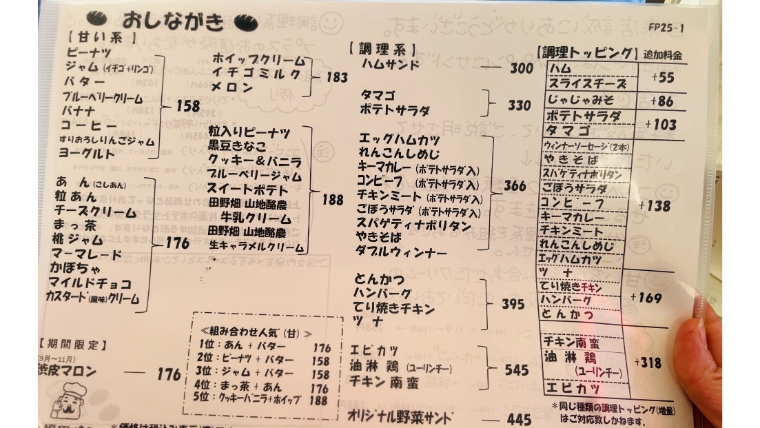 おしながき
FP25-1
【甘い系】
ピーナツ
ジャム(イチゴ+リンゴ)
バター
ブルーベリークリーム
バナナ
コーヒー
すりおろしりんごジャム
ヨーグルト
158
あん(こしあん)
粒あん
チーズクリーム
まっ茶
桃ジャム
マーマレード
かぼちゃ
マイルドチョコ
カスタード(風味)クリーム
176
【期間限定】
(9月〜11月)
渋皮マロン — 176
ホイップクリーム
イチゴミルク
メロン
183
粒入りピーナツ
黒豆きなこ
クッキー&バニラ
ブルーベリージャム
スイートポテト
田野畑 山地酪農
牛乳クリーム
田野畑 山地酪農
生キャラメルクリーム
188
≪組み合わせ人気(甘)≫
1位:あん+バター 176
2位:ピーナツ+バター 158
3位:ジャム+バター 158
4位:まっ茶+あん 176
5位:クッキーバニラ+ホイップ 188
【調理系】
ハムサンド — 300
タマゴ
ポテトサラダ
330
エッグハムカツ
れんこんしめじ
キーマカレー(ポテトサラダ入)
コンビーフ(ポテトサラダ入)
チキンミート(ポテトサラダ入)
ごぼうサラダ(ポテトサラダ入)
スパゲティナポリタン
やきそば
ダブルウィンナー
366
とんかつ
ハンバーグ
てり焼きチキン
ツナ
395
エビカツ
油淋鶏(ユーリンチー)
チキン南蛮
545
オリジナル野菜サンド — 445
【調理トッピング】追加料金
ハム
スライスチーズ
+55
じゃじゃみそ +86
ポテトサラダ
タマゴ
+103
ウィンナーソーセージ(2本)
やきそば
スパゲティナポリタン
ごぼうサラダ
コンビーフ
キーマカレー
チキンミート
れんこんしめじ
エッグハムカツ
+138
ツナ
てり焼きチキン
ハンバーグ
とんかつ
+169
チキン南蛮
油淋鶏
(ユーリンチー)
エビカツ
+318
*同じ種類の調理トッピング(増量)
はご対応致しかねます。